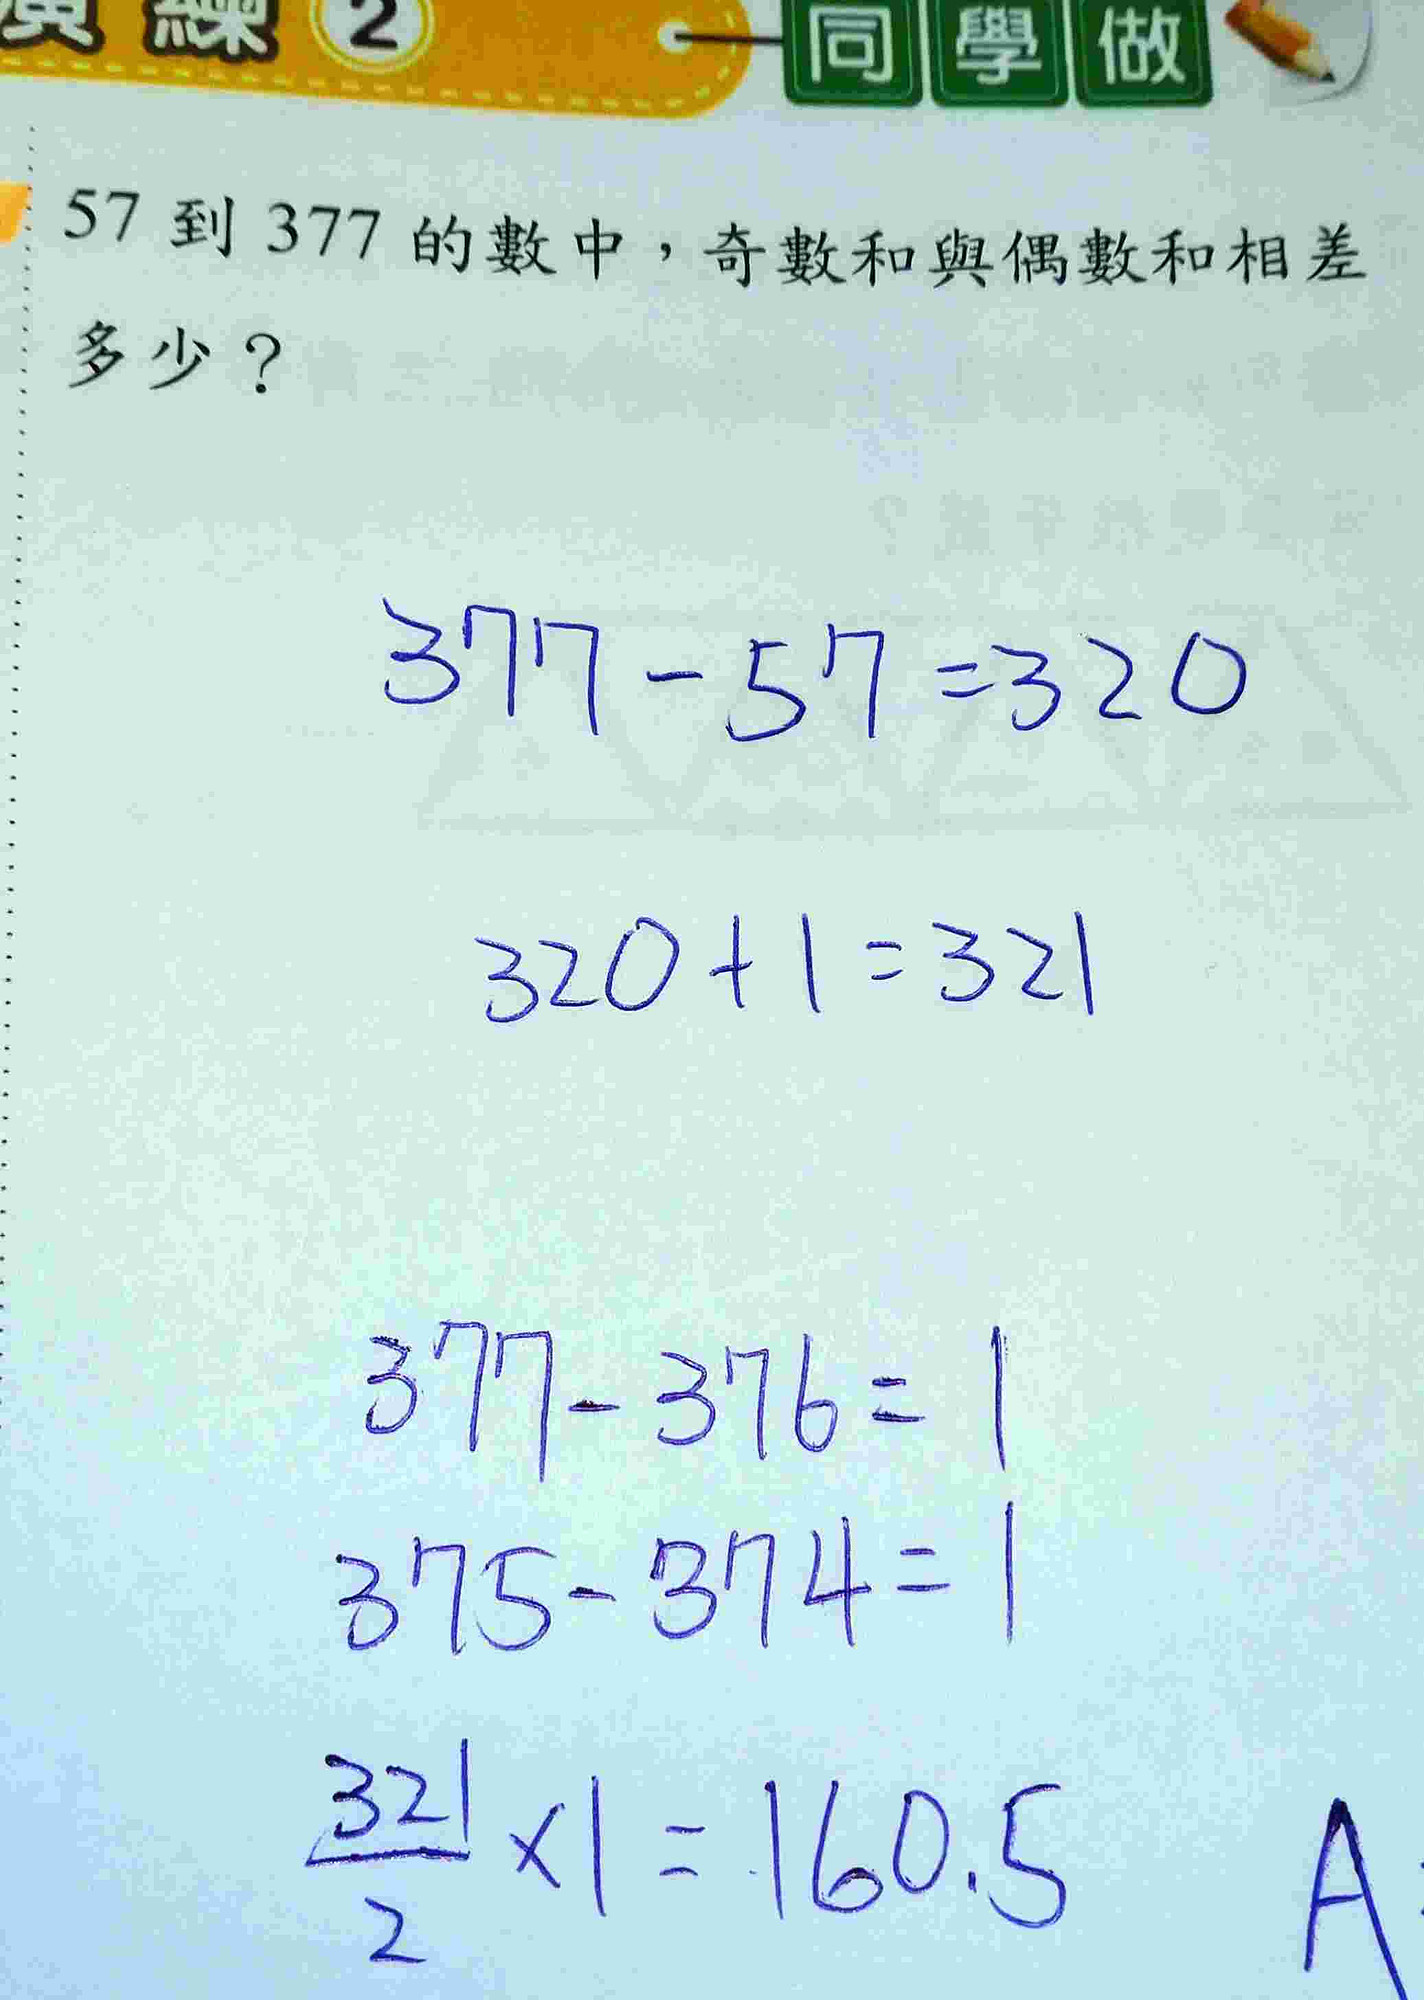 演練 2 同學做
57 到 377 的數中，奇數和與偶數和相差
多少？
377-57=320
320+1=321
377-376=1
375-374=1
321/2 ×1=160.5
A